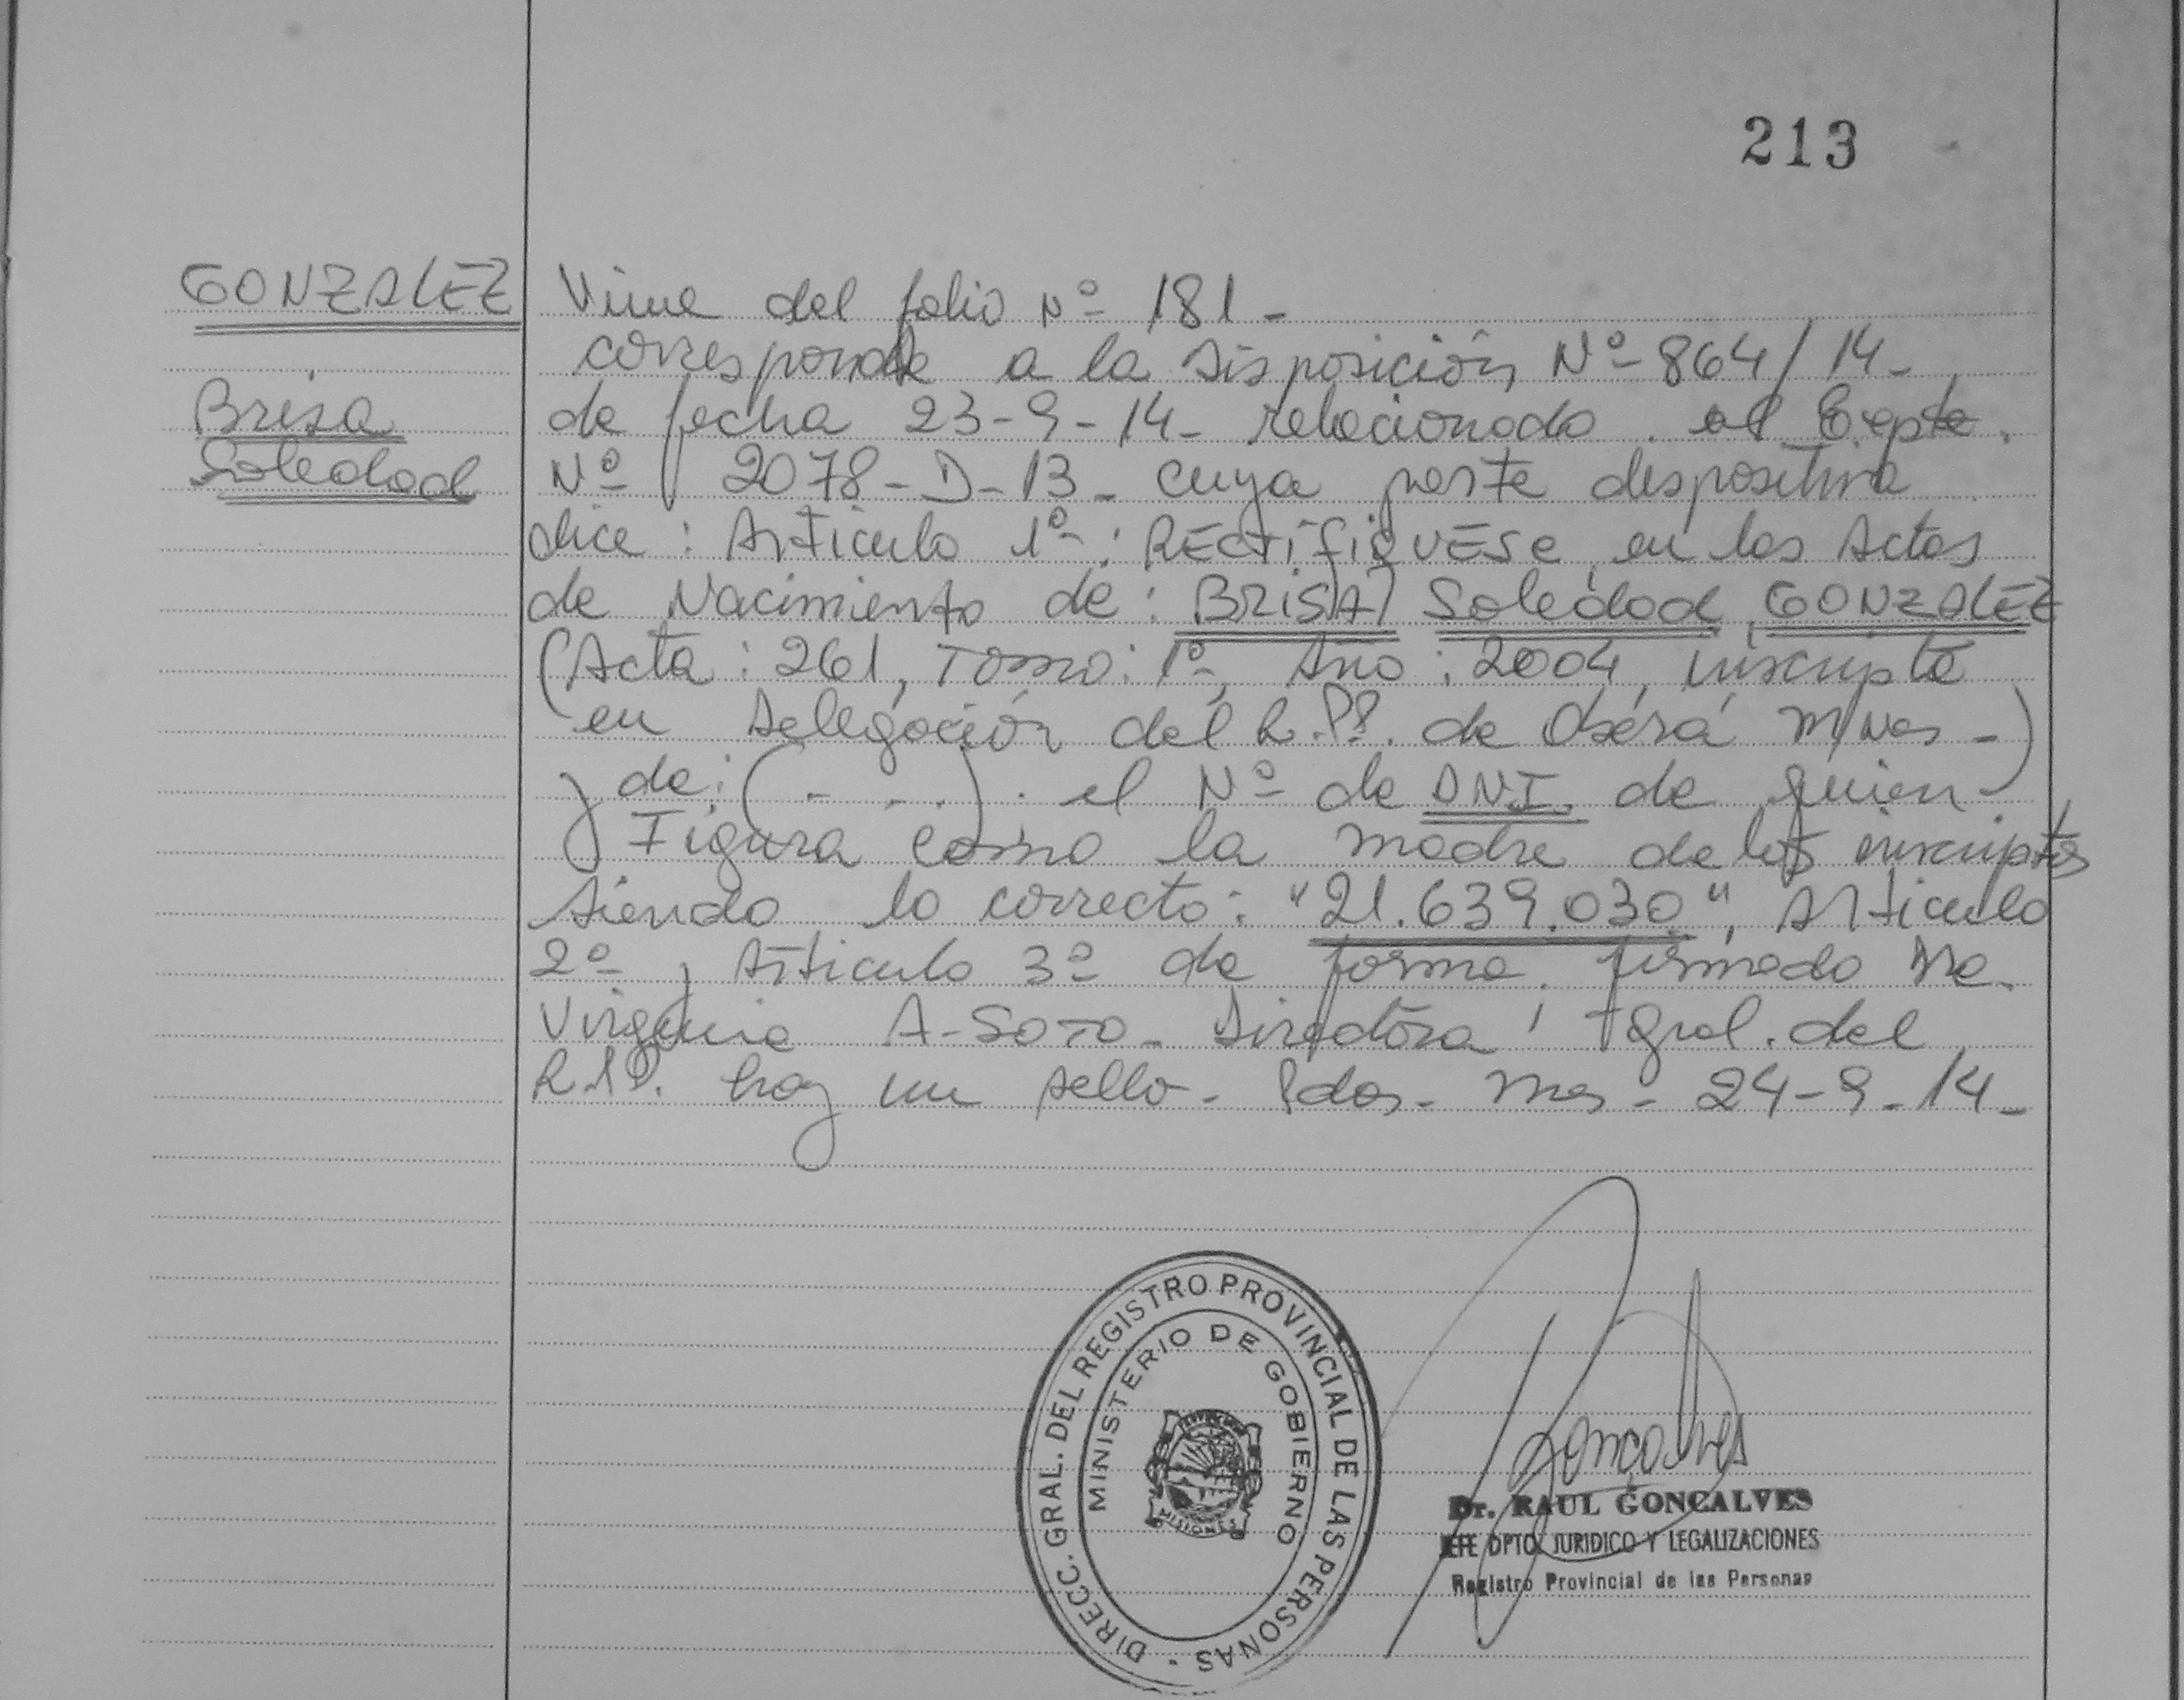 213
GONZALEZ
Brisa
Soledad
Viene del folio Nº 181-
corresponde a la Disposición Nº 864/14-
de fecha 23-9-14- relacionado al Expte.
Nº 2078-D-13- cuya parte dispositiva
dice: Artículo 1º: RECTIFIQUESE en las Actas
de Nacimiento de: BRISA Soledad GONZALEZ
(Acta: 261, Tomo: 1º, Año: 2004, inscripta
en Delegación del R.P.P. de Oberá Mnes-)
y de: (- - -). el Nº de DNI. de quien
Figura como la madre de los inscriptos
siendo lo correcto: "21.639.030", Artículo
2º, Artículo 3º de forma. firmado Ma.
Virginia A-SOTO- Directora Gral. del
R.P.P. hay un sello- Pdas- Mnes- 24-9-14-
DIRECC. GRAL. DEL REGISTRO PROVINCIAL DE LAS PERSONAS -
MINISTERIO DE GOBIERNO
MISIONES
Goncalves
Dr. RAUL GONCALVES
JEFE DPTO. JURIDICO Y LEGALIZACIONES
Registro Provincial de las Personas